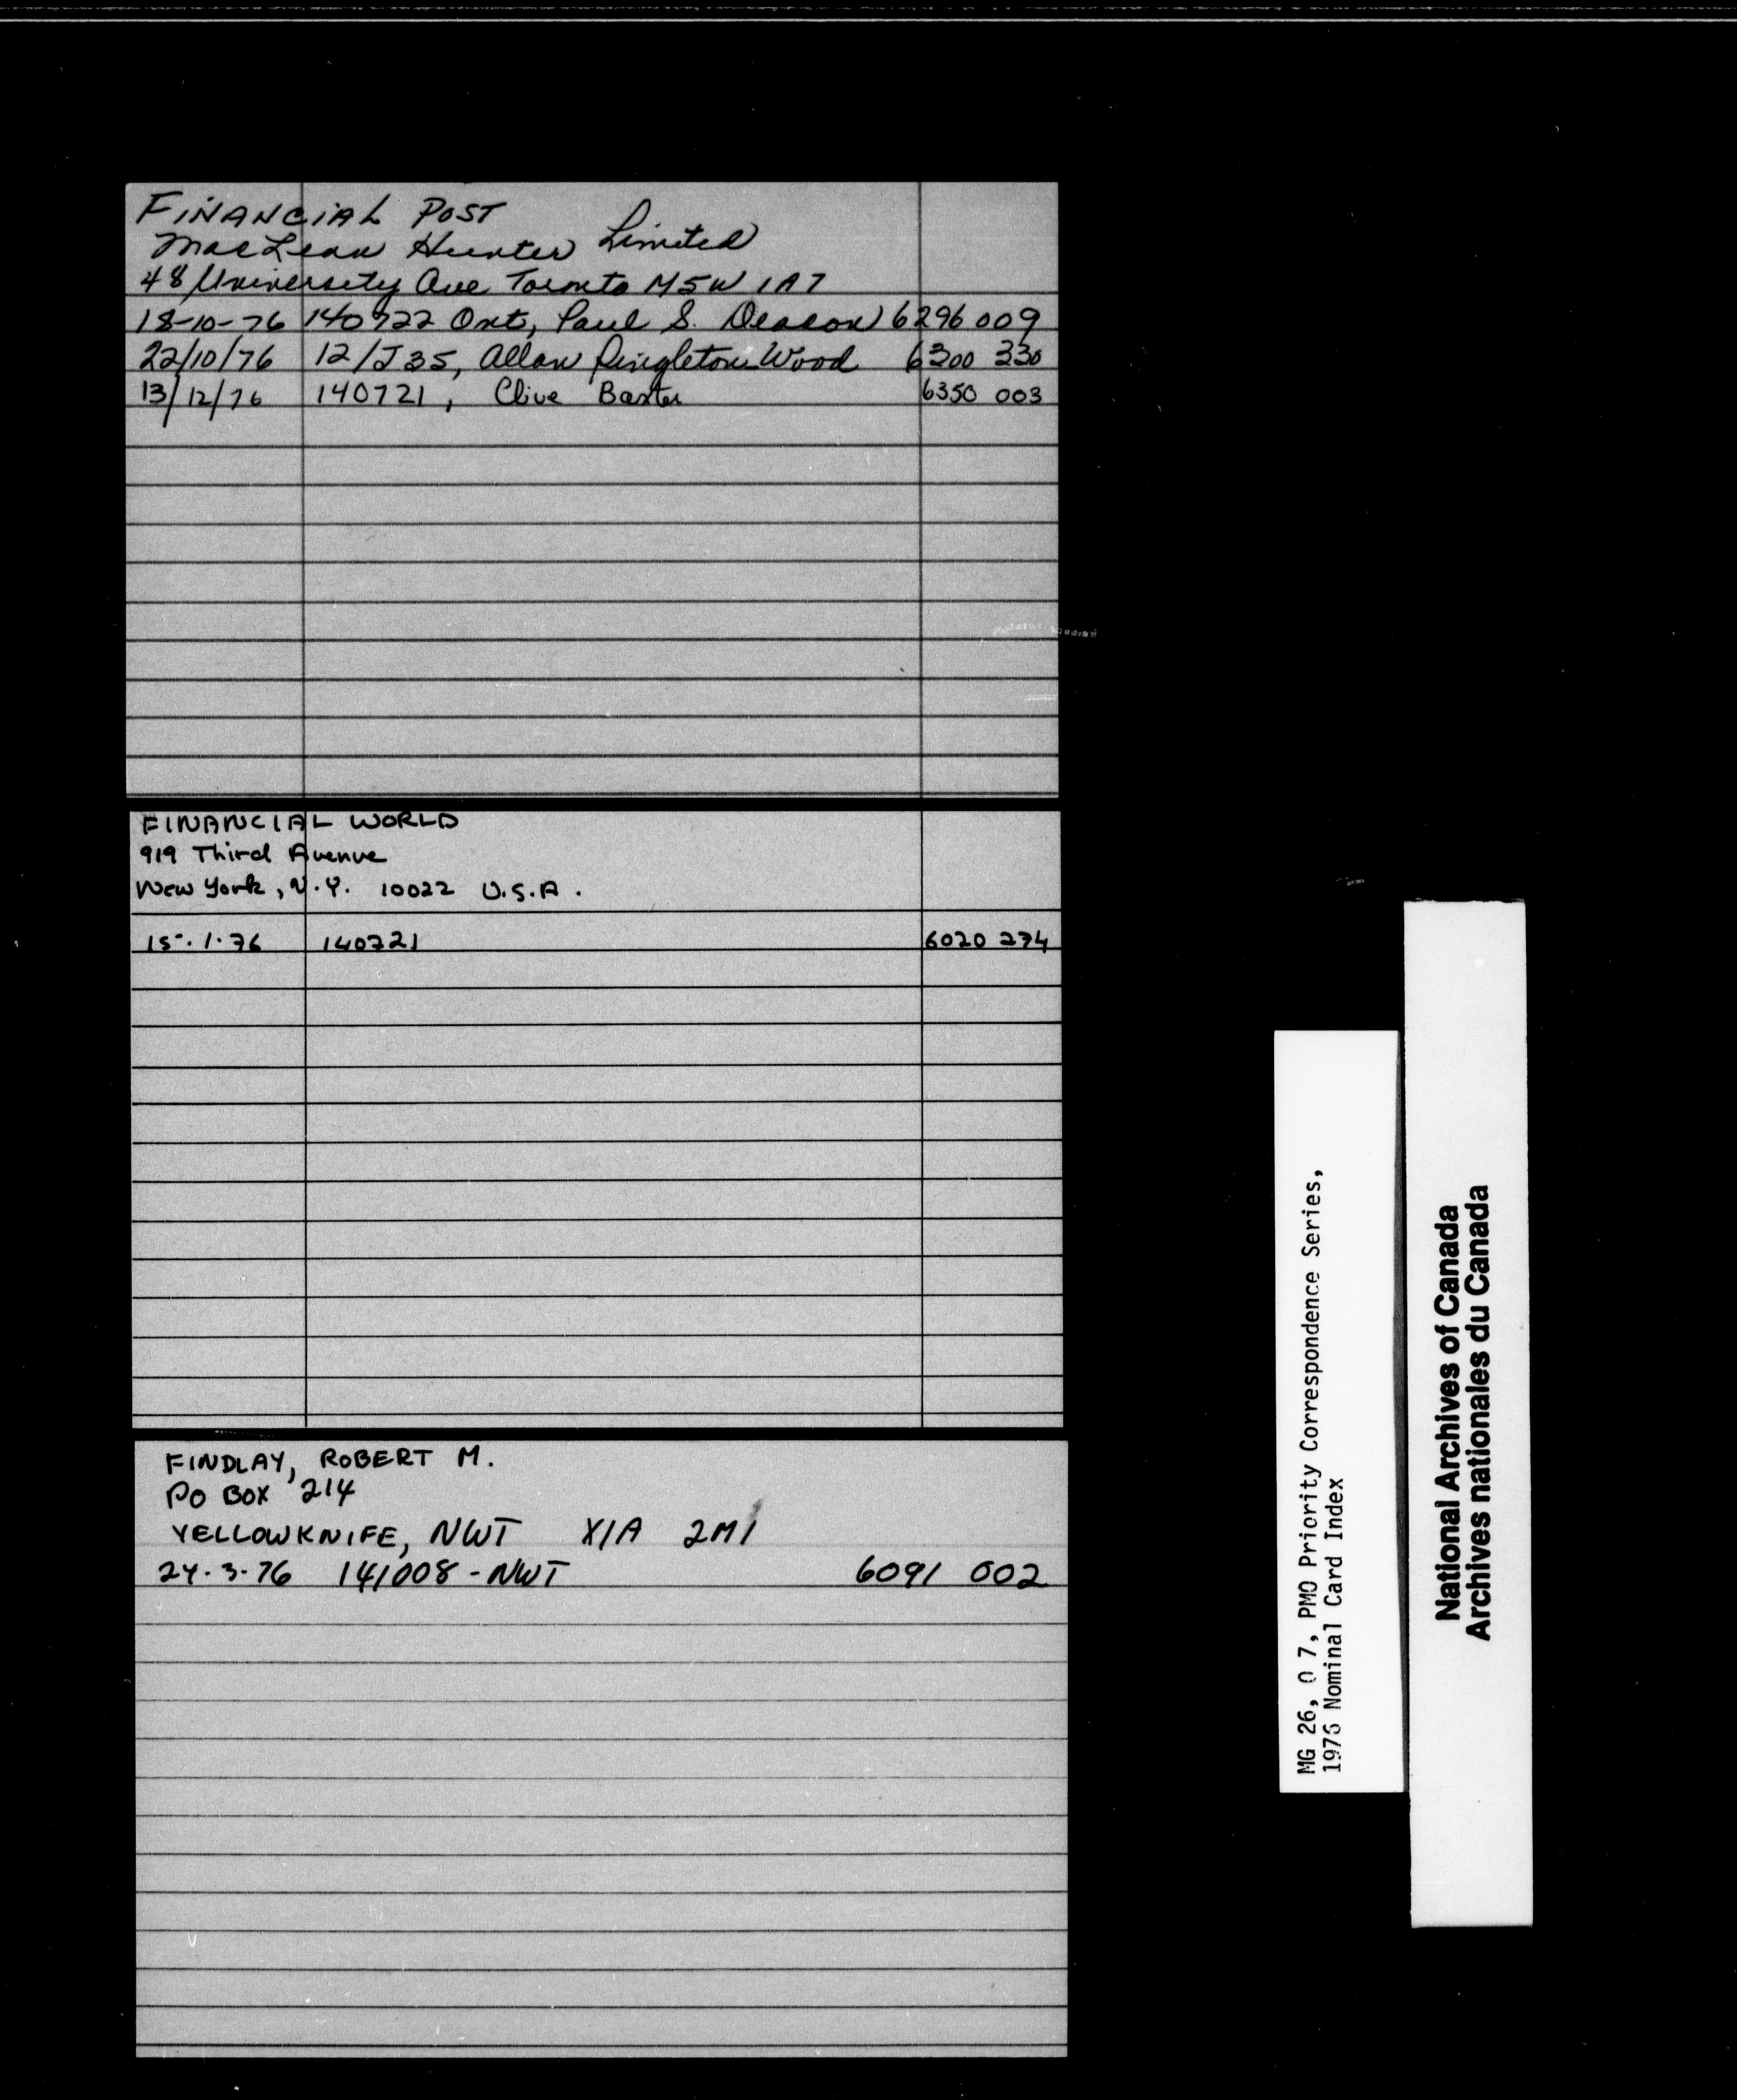 FINANCIAL POST
MacLean Hunter Limited
48 University Ave Toronto M5W 1A7
18-10-76 140722 Ont, Paul S. Deacon 6296 009
22/10/76 12/J35, Allan Pingleton-Wood 6300 330
13/12/76 140721, Clive Baxter 6350 003
FINANCIAL WORLD
919 Third Avenue
New York, N.Y. 10022 U.S.A.
15.1.76 140721 6020 274
FINDLAY, ROBERT M.
PO BOX 214
YELLOWKNIFE, NWT X1A 2M1
24.3.76 141008-NWT 6091 002
MG 26, O 7, PMO Priority Correspondence Series,
1976 Nominal Card Index
National Archives of Canada
Archives nationales du Canada